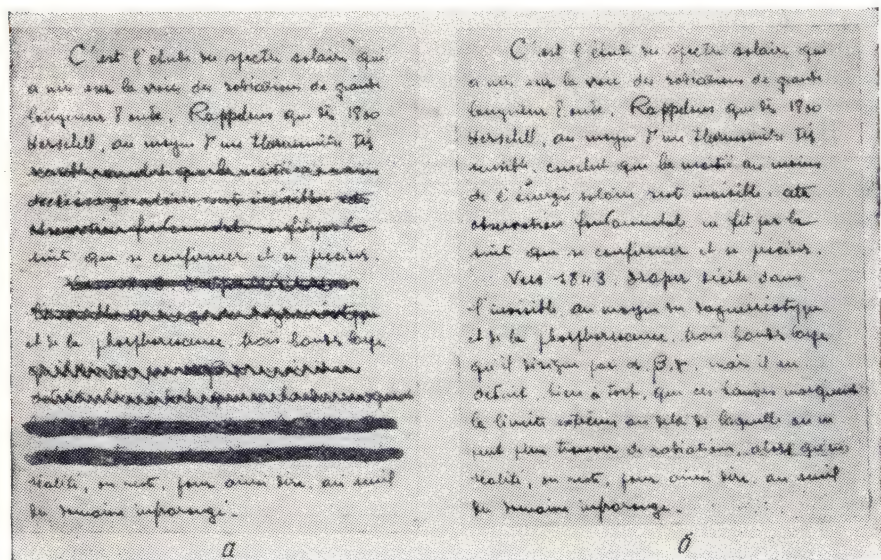 C'est l'étude du spectre solaire qui
a mis sur la voie des radiations de grande
longueur d'onde. Rappelons que dès 1800
Herschell, au moyen d'une thermomètre très
sensible, conclut que la moitié au moins
observation fondamentale ne fit par la
suite que se confirmer et se préciser.
l'invisible, au moyen du daguerréotype
et de la phosphorescence, trois bandes larges
réalité, on n'est, pour ainsi dire, au seuil
du domaine infrarouge.
а
C'est l'étude du spectre solaire qui
a mis sur la voie des radiations de grande
longueur d'onde. Rappelons que dès 1800
Herschell, au moyen d'une thermomètre très
sensible, conclut que la moitié au moins
de l'énergie solaire est invisible. cette
observation fondamentale ne fit par la
suite que se confirmer et se préciser.
Vers 1843, Draper décèle dans
l'invisible, au moyen du daguerréotype
et de la phosphorescence, trois bandes larges
qu'il désigne par α, β, γ, mais il en
déduit, bien à tort, que ces bandes marquent
la limite extrême au delà de laquelle on ne
peut plus trouver de radiations, alors qu'en
réalité, on n'est, pour ainsi dire, au seuil
du domaine infrarouge.
б